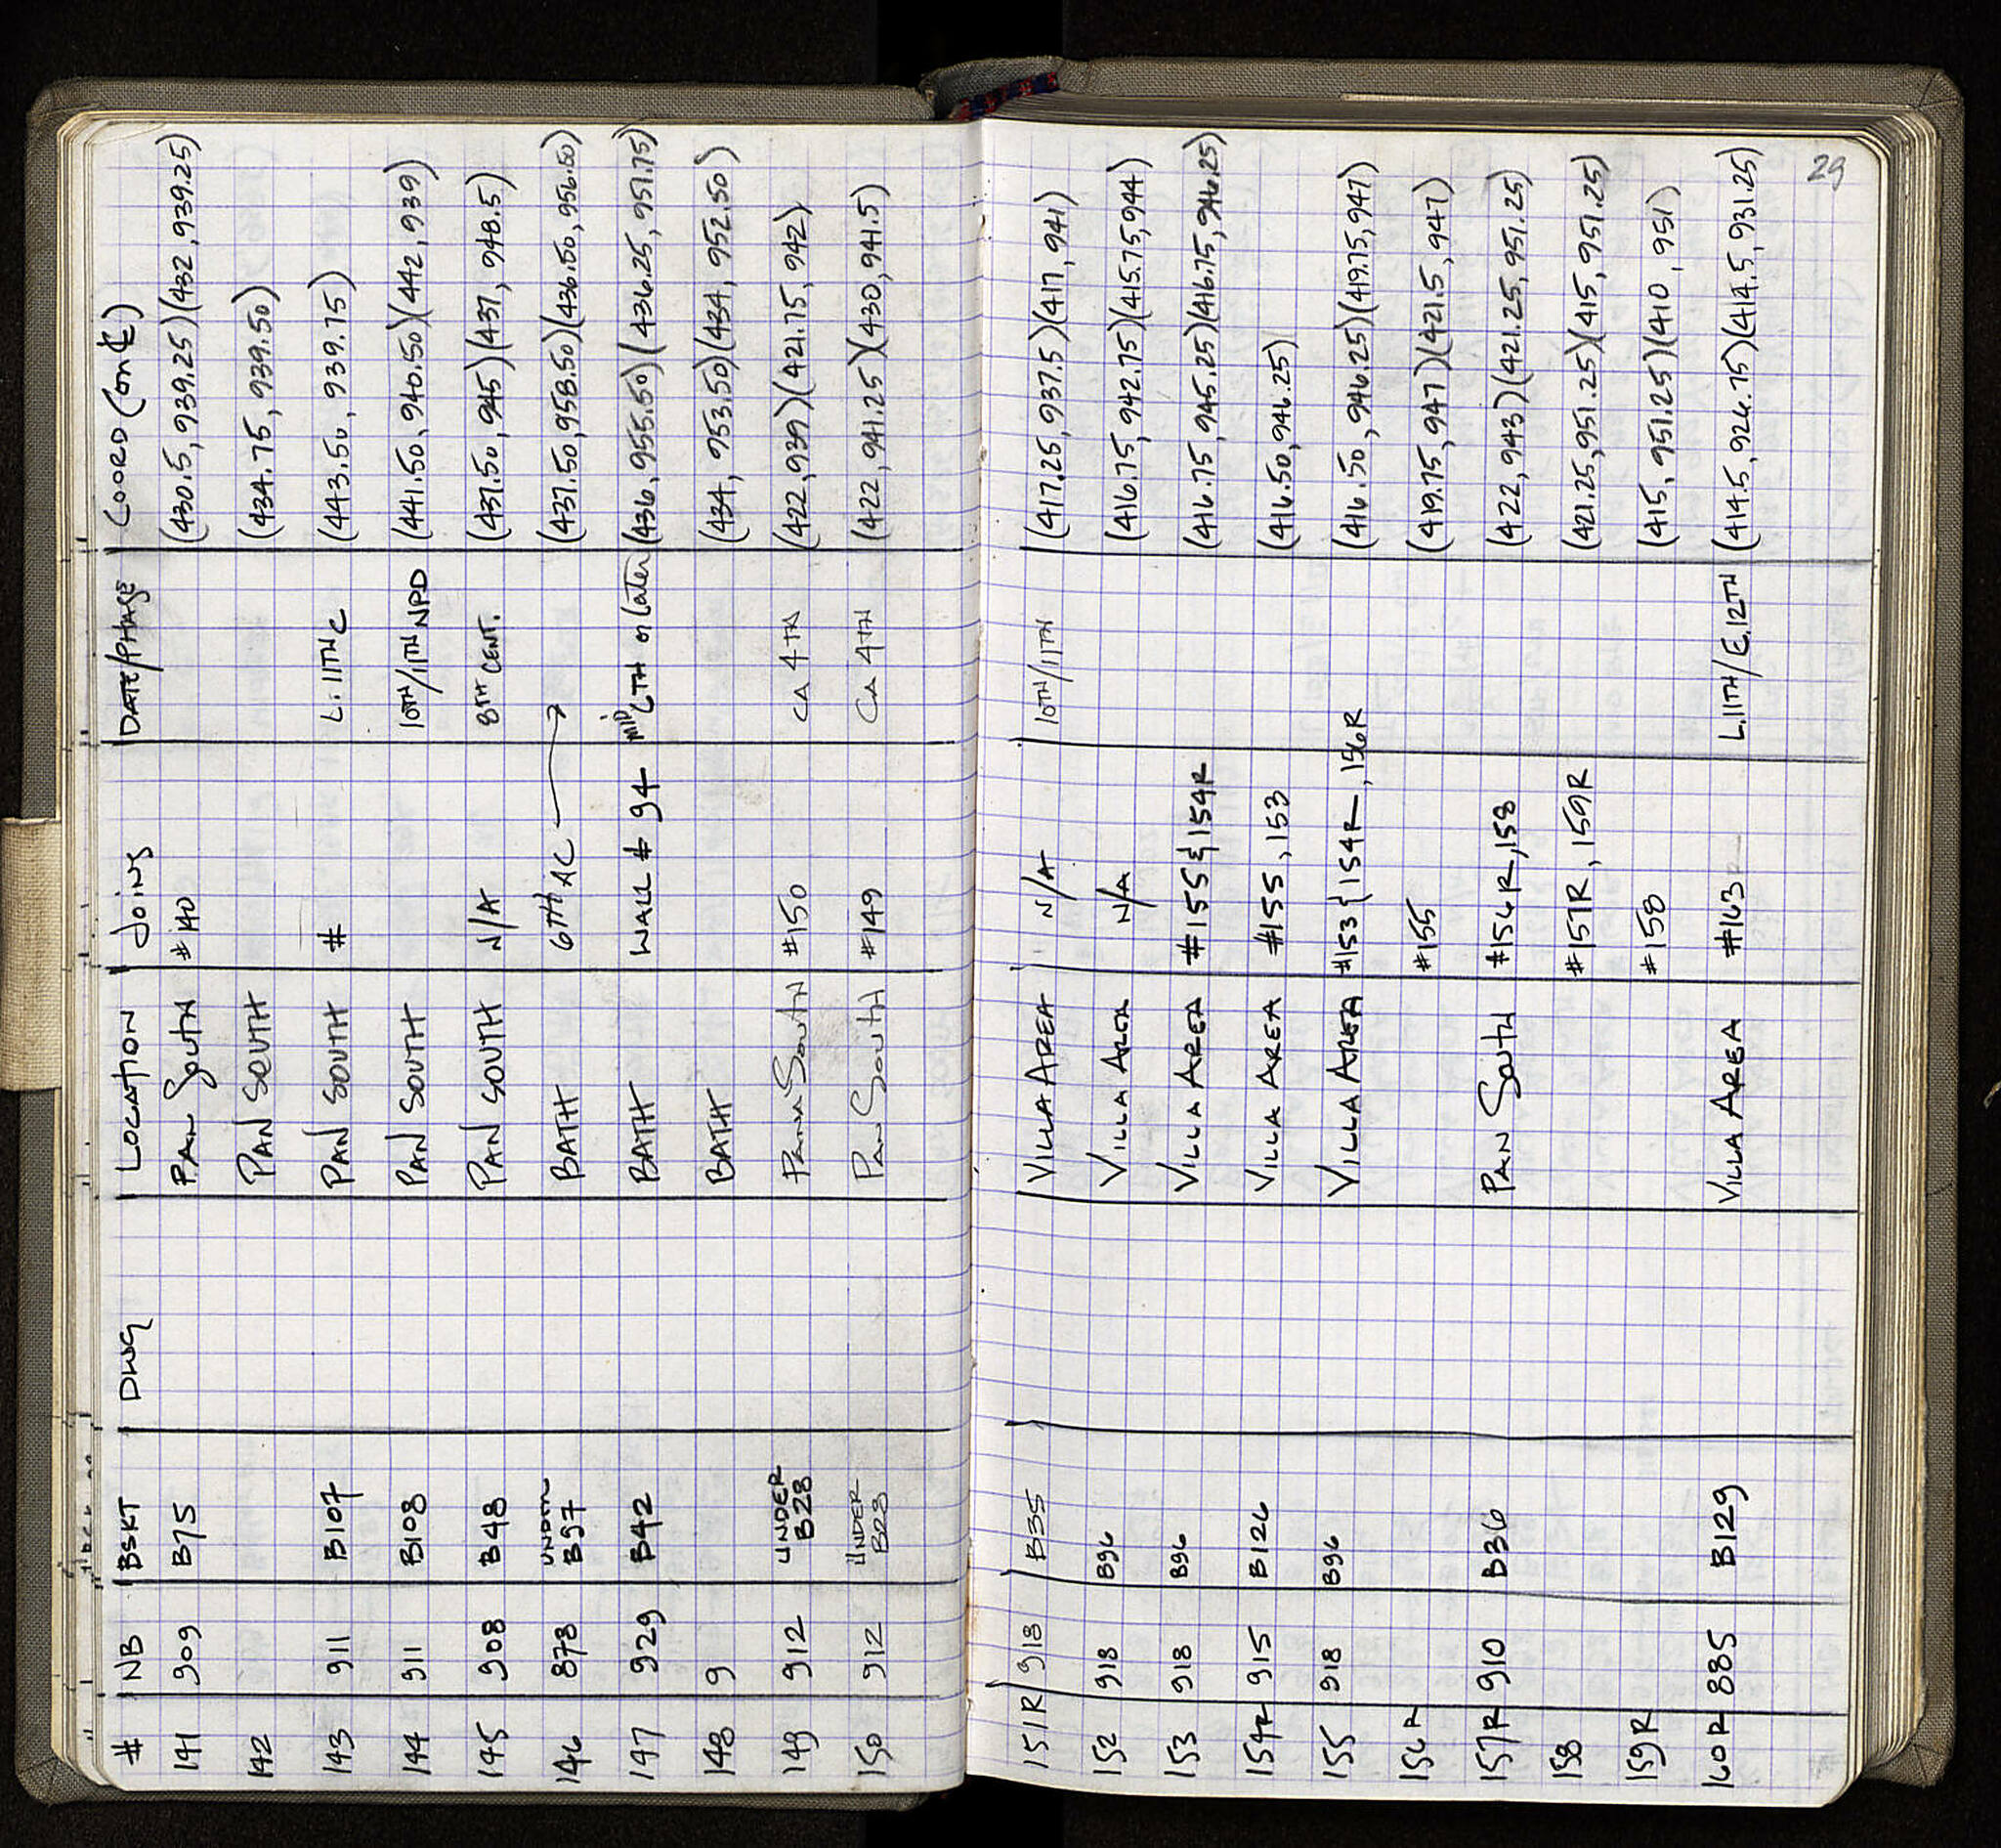 # NB BSKT DWG LOCATION Joins DATE/PHASE COORD (on ₤)
141 909 B75 PAN South #140 (430.5, 939.25)(432, 939.25)
142 PAN SOUTH (434.75, 939.50)
143 911 B107 PAN SOUTH # L. 11TH C (443.50, 939.75)
144 911 B108 PAN SOUTH 10TH/11TH NPD (441.50, 940.50)(442, 939)
145 908 B48 PAN SOUTH N/A 8TH CENT. (437.50, 945)(437, 948.5)
146 878 UNDER B97 BATH 6TH AC → (437.50, 958.50)(436.50, 956.50)
147 929 B42 BATH WALL # 94 MID 6TH or later (436, 955.50)(436.25, 951.75)
148 9 BATH (434, 953.50)(434, 952.50)
149 912 UNDER B28 PANA South #150 CA 4TH (422, 939)(421.75, 942)
150 912 UNDER B28 Pan South #149 CA 4TH (422, 941.25)(430, 941.5)
151R 918 B35 VILLA AREA N/A 10TH/11TH (417.25, 937.5)(417, 941)
152 918 B96 VILLA AREA N/A (416.75, 942.75)(415.75, 944)
153 918 B96 VILLA AREA #155 & 154R (416.75, 945.25)(416.75, 946.25)
154R 915 B126 VILLA AREA #155, 153 (416.50, 946.25)
155 918 B96 VILLA AREA #153 & 154R, 156R (416.50, 946.25)(419.75, 947)
156R #155 (419.75, 947)(421.5, 947)
157R 910 B36 PAN South #156R, 158 (422, 943)(421.25, 951.25)
158 #157R, 159R (421.25, 951.25)(415, 951.25)
159R #158 (415, 951.25)(410, 951)
160R 885 B129 VILLA AREA #163 L.11TH/E.12TH (414.5, 926.75)(414.5, 931.25)
29